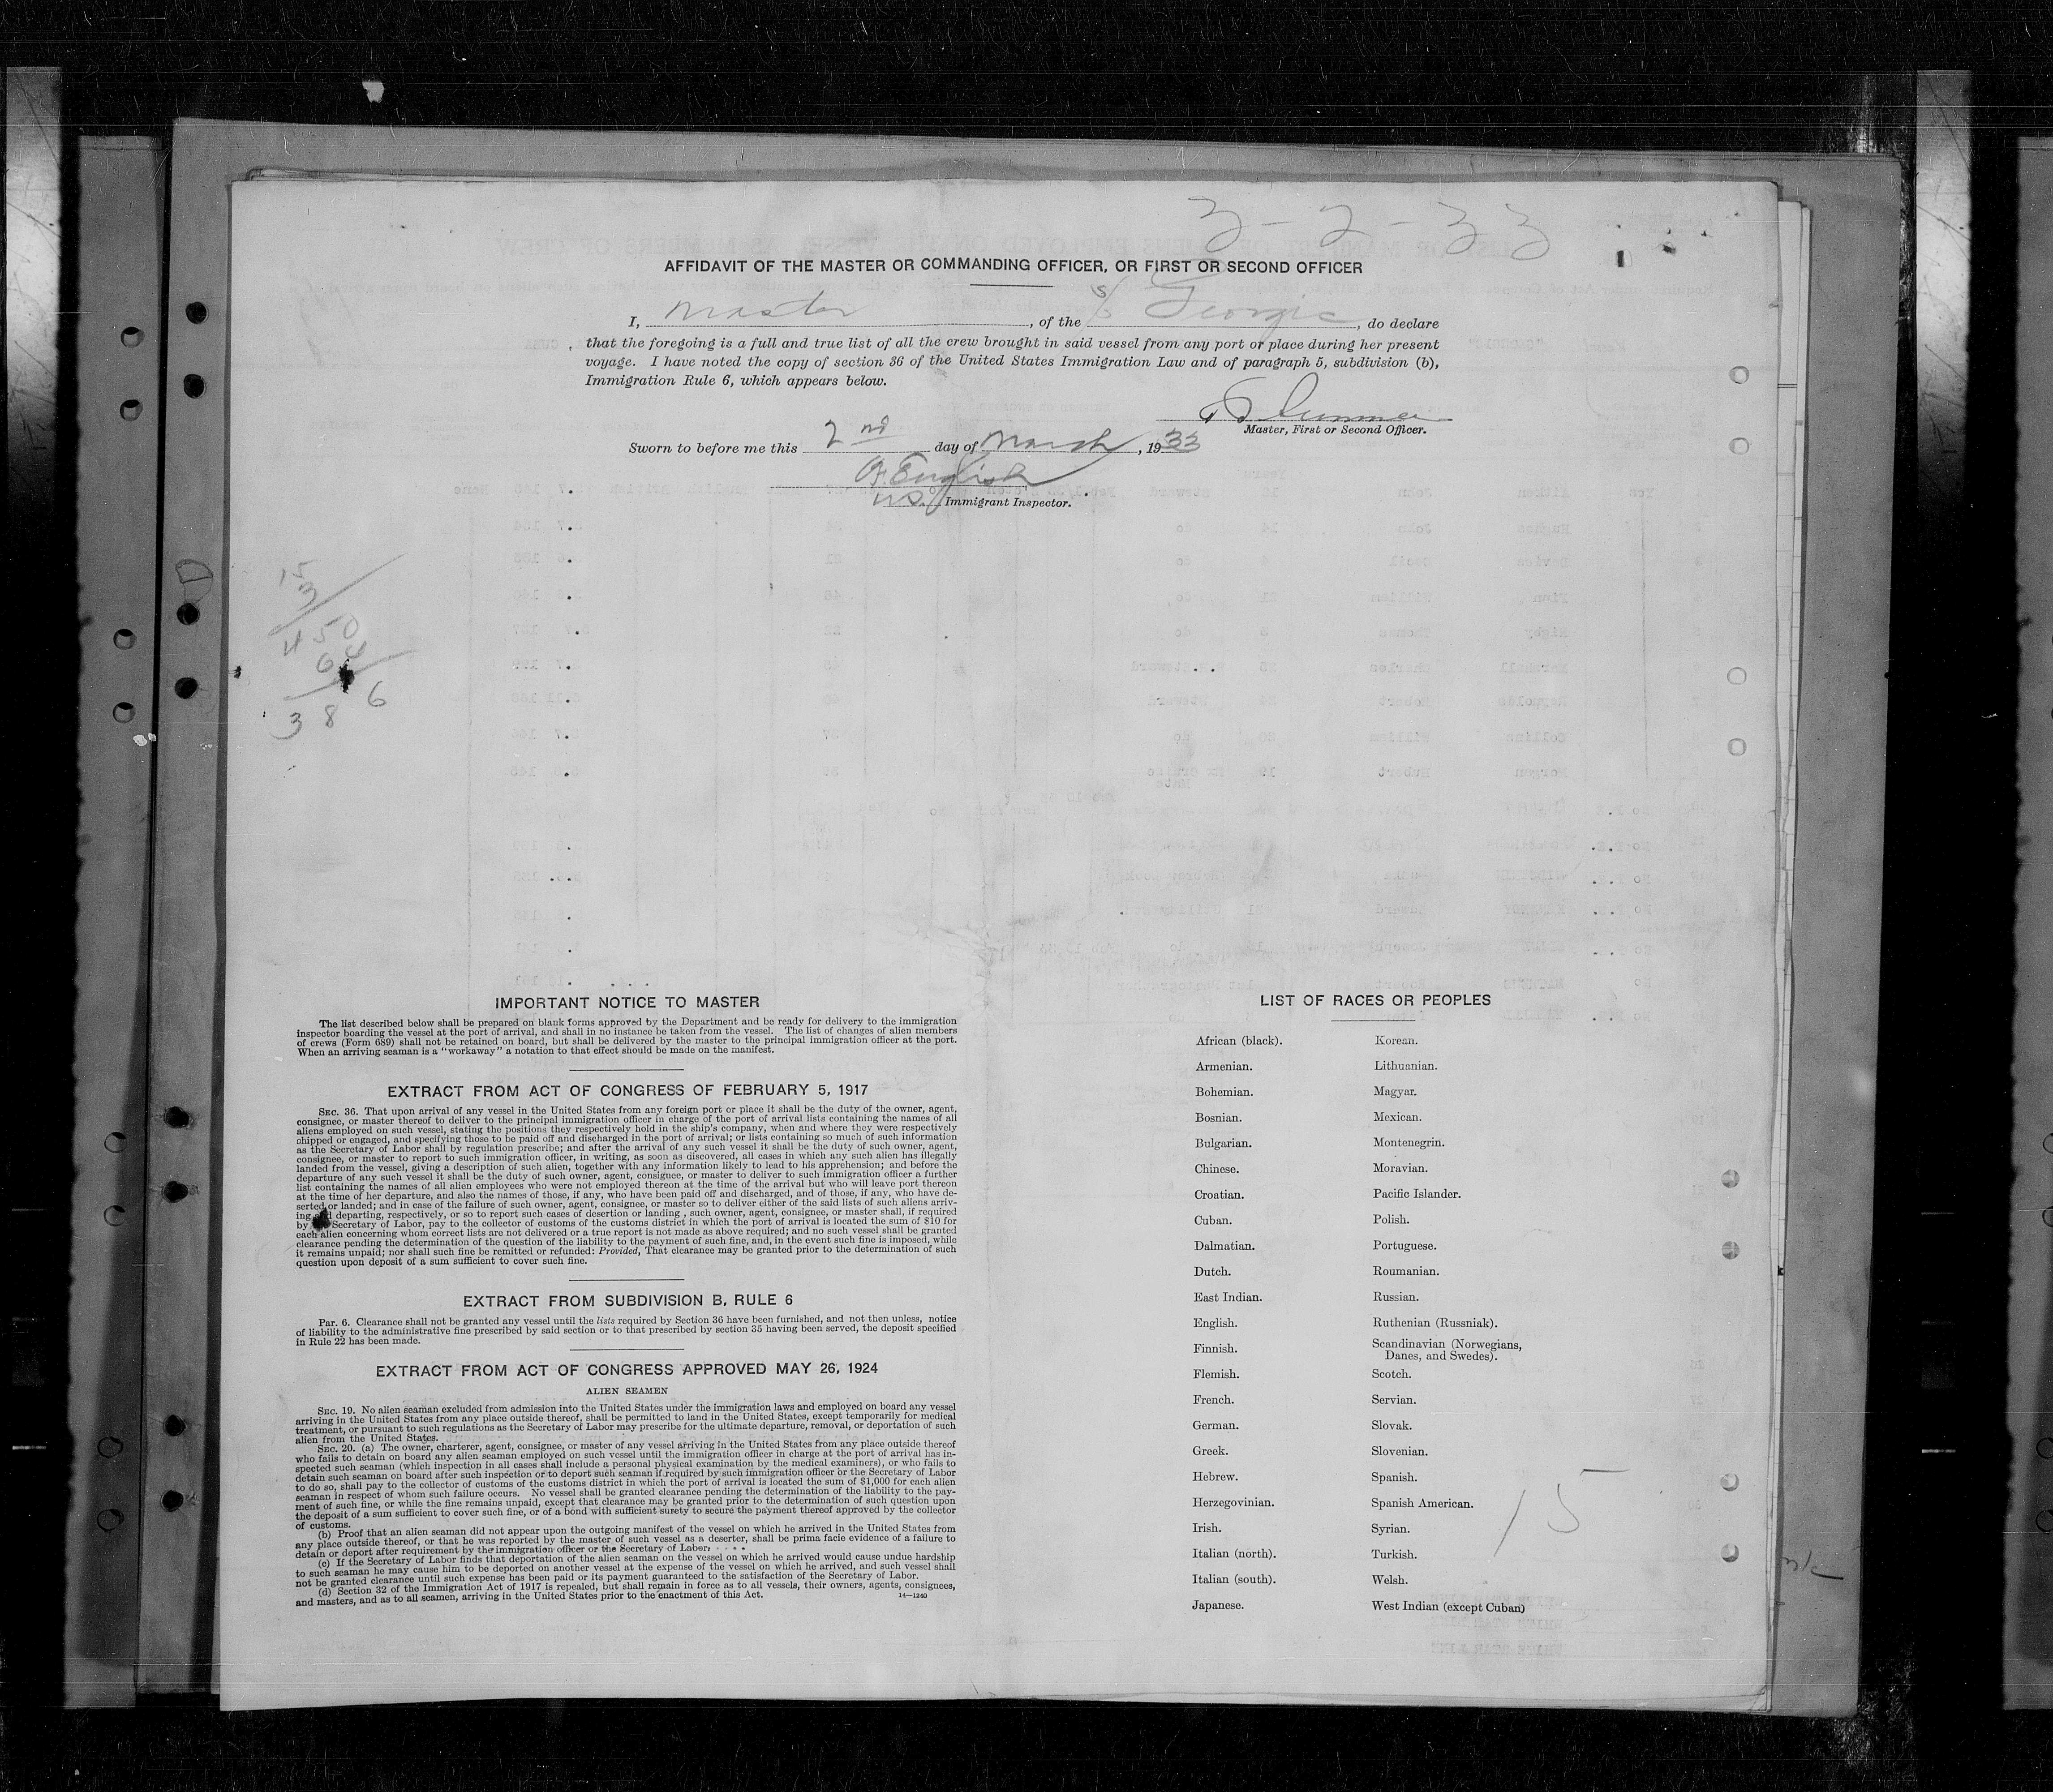 3-2-33
AFFIDAVIT OF THE MASTER OR COMMANDING OFFICER, OR FIRST OR SECOND OFFICER
I, Master, of the S/S Georgic, do declare
that the foregoing is a full and true list of all the crew brought in said vessel from any port or place during her present
voyage. I have noted the copy of section 36 of the United States Immigration Law and of paragraph 5, subdivision (b),
Immigration Rule 6, which appears below.
Master, First or Second Officer.
Sworn to before me this 2nd day of March, 1933
English
U.S. Immigrant Inspector.
15
3
450
64
6
38
IMPORTANT NOTICE TO MASTER
The list described below shall be prepared on blank forms approved by the Department and be ready for delivery to the immigration
inspector boarding the vessel at the port of arrival, and shall in no instance be taken from the vessel. The list of changes of alien members
of crews (Form 689) shall not be retained on board, but shall be delivered by the master to the principal immigration officer at the port.
When an arriving seaman is a "workaway" a notation to that effect should be made on the manifest.
EXTRACT FROM ACT OF CONGRESS OF FEBRUARY 5, 1917
SEC. 36. That upon arrival of any vessel in the United States from any foreign port or place it shall be the duty of the owner, agent,
consignee, or master thereof to deliver to the principal immigration officer in charge of the port of arrival lists containing the names of all
aliens employed on such vessel, stating the positions they respectively hold in the ship's company, when and where they were respectively
shipped or engaged, and specifying those to be paid off and discharged in the port of arrival; or lists containing so much of such information
as the Secretary of Labor shall by regulation prescribe; and after the arrival of any such vessel it shall be the duty of such owner, agent,
consignee, or master to report to such immigration officer, in writing, as soon as discovered, all cases in which any such alien has illegally
landed from the vessel, giving a description of such alien, together with any information likely to lead to his apprehension; and before the
departure of any such vessel it shall be the duty of such owner, agent, consignee, or master to deliver to such immigration officer a further
list containing the names of all alien employees who were not employed thereon at the time of the arrival but who will leave port thereon
at the time of her departure, and also the names of those, if any, who have been paid off and discharged, and of those, if any, who have de-
serted or landed; and in case of the failure of such owner, agent, consignee, or master so to deliver either of the said lists of such aliens arriv-
ing and departing, respectively, or so to report such cases of desertion or landing, such owner, agent, consignee, or master shall, if required
by Secretary of Labor, pay to the collector of customs of the customs district in which the port of arrival is located the sum of $10 for
each alien concerning whom correct lists are not delivered or a true report is not made as above required; and no such vessel shall be granted
clearance pending the determination of the question of the liability to the payment of such fine, and, in the event such fine is imposed, while
it remains unpaid; nor shall such fine be remitted or refunded: Provided, That clearance may be granted prior to the determination of such
question upon deposit of a sum sufficient to cover such fine.
EXTRACT FROM SUBDIVISION B, RULE 6
Par. 6. Clearance shall not be granted any vessel until the lists required by Section 36 have been furnished, and not then unless, notice
of liability to the administrative fine prescribed by said section or to that prescribed by section 35 having been served, the deposit specified
in Rule 22 has been made.
EXTRACT FROM ACT OF CONGRESS APPROVED MAY 26, 1924
ALIEN SEAMEN
SEC. 19. No alien seaman excluded from admission into the United States under the immigration laws and employed on board any vessel
arriving in the United States from any place outside thereof, shall be permitted to land in the United States, except temporarily for medical
treatment, or pursuant to such regulations as the Secretary of Labor may prescribe for the ultimate departure, removal, or deportation of such
alien from the United States.
SEC. 20. (a) The owner, charterer, agent, consignee, or master of any vessel arriving in the United States from any place outside thereof
who fails to detain on board any alien seaman employed on such vessel until the immigration officer in charge at the port of arrival has in-
spected such seaman (which inspection in all cases shall include a personal physical examination by the medical examiners), or who fails to
detain such seaman on board after such inspection or to deport such seaman if required by such immigration officer or the Secretary of Labor
to do so, shall pay to the collector of customs of the customs district in which the port of arrival is located the sum of $1,000 for each alien
seaman in respect of whom such failure occurs. No vessel shall be granted clearance pending the determination of the liability to the pay-
ment of such fine, or while the fine remains unpaid, except that clearance may be granted prior to the determination of such question upon
the deposit of a sum sufficient to cover such fine, or of a bond with sufficient surety to secure the payment thereof approved by the collector
of customs.
(b) Proof that an alien seaman did not appear upon the outgoing manifest of the vessel on which he arrived in the United States from
any place outside thereof, or that he was reported by the master of such vessel as a deserter, shall be prima facie evidence of a failure to
detain or deport after requirement by the immigration officer or the Secretary of Labor.
(c) If the Secretary of Labor finds that deportation of the alien seaman on the vessel on which he arrived would cause undue hardship
to such seaman he may cause him to be deported on another vessel at the expense of the vessel on which he arrived, and such vessel shall
not be granted clearance until such expense has been paid or its payment guaranteed to the satisfaction of the Secretary of Labor.
(d) Section 32 of the Immigration Act of 1917 is repealed, but shall remain in force as to all vessels, their owners, agents, consignees,
and masters, and as to all seamen, arriving in the United States prior to the enactment of this Act.
14—1240
LIST OF RACES OR PEOPLES
African (black).
Armenian.
Bohemian.
Bosnian.
Bulgarian.
Chinese.
Croatian.
Cuban.
Dalmatian.
Dutch.
East Indian.
English.
Finnish.
Flemish.
French.
German.
Greek.
Hebrew.
Herzegovinian.
Irish.
Italian (north).
Italian (south).
Japanese.
Korean.
Lithuanian.
Magyar.
Mexican.
Montenegrin.
Moravian.
Pacific Islander.
Polish.
Portuguese.
Roumanian.
Russian.
Ruthenian (Russniak).
Scandinavian (Norwegians,
Danes, and Swedes).
Scotch.
Servian.
Slovak.
Slovenian.
Spanish.
Spanish American.
Syrian.
Turkish.
Welsh.
West Indian (except Cuban)
15